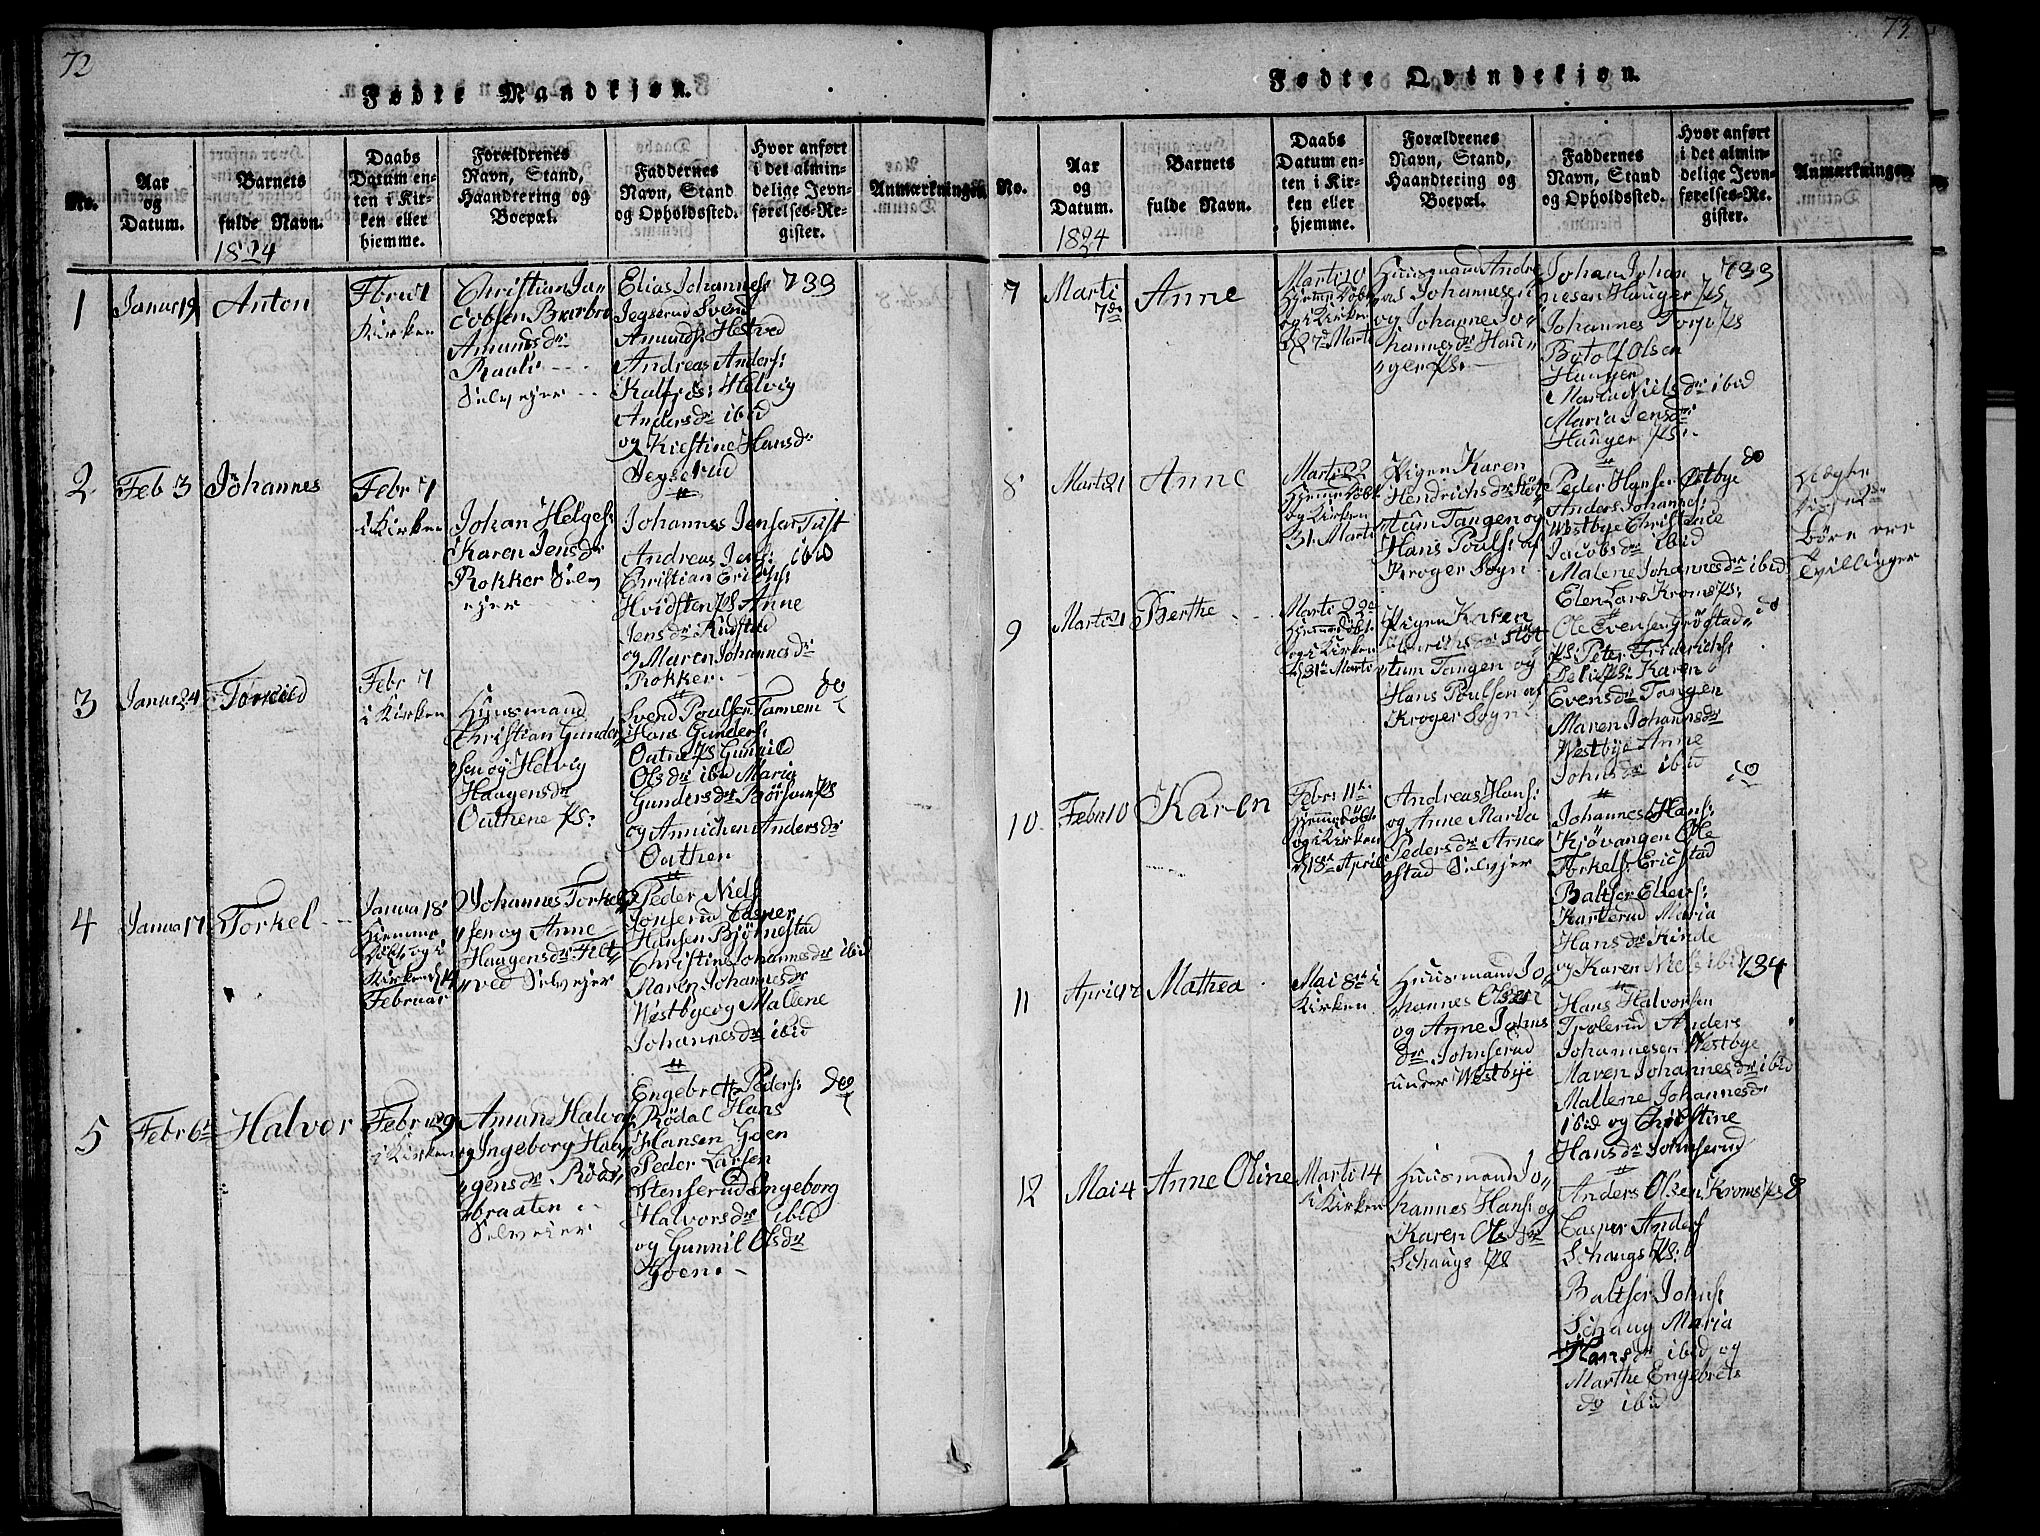 72
Fødte Mandkjøn.
No.
Aar
og
Datum.
Barnets
fulde Navn.
1824
Daabs
Datum en-
ten i Kir-
ken eller
hjemme.
Forældrenes
Navn, Stand,
Haandtering og
Boepæl.
Faddernes
Navn, Stand
og Opholdssted.
Hvor anført
i det almin-
delige Jevn-
førelses-Re-
gister.
Anmærkninger.
1
Januar 19
Anton
Febru 1
i Kirken
Christian Ja"
cobsen
Amunds dr
Selvejer
Elias Johannes
Jegserud Svend
Amunds: Hestved
Andreas Anders:
Helvig
Anders dr ibid
og Kirstine Hans dr
Jegserud
733
2
Feb 3
Johannes
Febr 1
i Kirken
Johan Helges:
Karen Jens dr
Rokker Selv
ejer
Johannes Jensen Tust
Andreas Jens: ibid
Christian Erichs:
Hvidsten Ps Anne
Jens dr Rudstad
og Maren Johannes dr
Rokker.
3
Janua 24
Febr 1
i Kirken
Huusmand
Christian Gunder
sen og Helvig
Haagens dr
Oathene Ps:
Svend Poulsen
Hans Gunders:
Oatne Ps Gunnild
Ols dr ibid Maria
Gunders dr Ps
og Annichen Anders dr
Oathen
do
4
Janua 17
Torkel
Janua 18
Hjemme
døbt og i
Kirken d 14
Februar
Johannes Torkel
sen og Anne
Haagens dr
ved Selvejer
Peder Niels
Jonserud Casper
Hansen Bjørnestad
Christine Johannes dr ibid
Maren Johannes dr
Westbye og Mallene
Johannes dr ibid
5
Febr 6t
Halvor
Febru 29
i Kirken
Amun Halvor
Ingeborg Haa
gens dr Röds
braaten
Selvejer
Engebret Peders:
Rödal Hans
Hansen Goen
Peder Larsen
Stenserud Ingeborg
Halvors dr ibid
og Gunnil Ols dr
Goen.
do
73
Fødte Qvindekjøn.
No.
Aar
og
Datum.
1824
Barnets
fulde Navn.
Daabs
Datum en-
ten i Kir-
ken eller
hjemme.
Forældrenes
Navn, Stand,
Haandtering og
Boepæl.
Faddernes
Navn, Stand
og Opholdssted.
Hvor anført
i det almin-
delige Jevn-
førelses-Re-
gister.
Anmærkninger.
7
Marti
7de
Anne
Marti 10
hjemme døbt
og i Kirken
d 27 Marti
Huusmand Andre
as Johannesen
og Johanne Jo"
hannes dr Hau"
ger Ps:
Johan Johan
nesen Hauger Ps
Johannes Torp Ps
Botolf Olsen
Hauger
Maria Niels dr ibid
Maria Jens dr
Hauger Ps:
733
8
Marti 21
Anne
Marti 22
hjemme døbt
og i Kirken
31 Marti
Pigen Karen
Hendrichs dr
Tangen og
Hans Pouls: af
Kroger Sogn
Peder Hansen Østbye
Anders Johannes:
Westbye Christence
Jacobs dr ibid
Malene Johannes dr ibid
Elen Lars Kroms Ps:
do
Børn ere
Tvillinger
9
Marti 21
Berthe
Marti 22de
hjemme døbt
og i Kirken
d 31te Marti
Pigen Karen
Henrichs dr
Tangen og
Hans Poulsen af
Kroger Sogn
Ole Evensen Grøstad
Ps: Peter Friderichs:
Ps: Karen
Evens dr Tangen
Maren Johanns dr
Westbye Anne
Johns dr ibid
do
10
Febr 10
Karen
Febr: 11te
hjemme døbt
og i Kirken
d 18de April
Andreas Hans:
og Anne Maria
Peders dr Arne
stad Selvejer
Johannes Hans:
Kjøvangen Ole
Torkels: Ericstad
Baltser Ellens:
Karlerud Maria
Hans dr Kinde
og Karen Niels ibid
do
11
April 12
Mathea
Mai 8de i
Kirken
Huusmand Jo
hannes Olsen
og Anne Johns
dr Johnserud
under Westbye
Hans Halvorsen
Trolerud Anders
Johannesen Westbye
Maren Johannes dr ibid
Mallene Johannes dr
ibid og Christine
Hans dr Johnserud
734
12
Mai 4
Anne Oline
Marti 14
i Kirken
Huusmand Jo"
hannes Hans: og
Karen Ols dr
Schaugs Ps
Anders Olsen Kroms Ps
Casper Anders
Schaugs Ps:
Baltser Johns:
Schaug Maria
Hans dr ibid og
Marthe Engebrets
do ibid